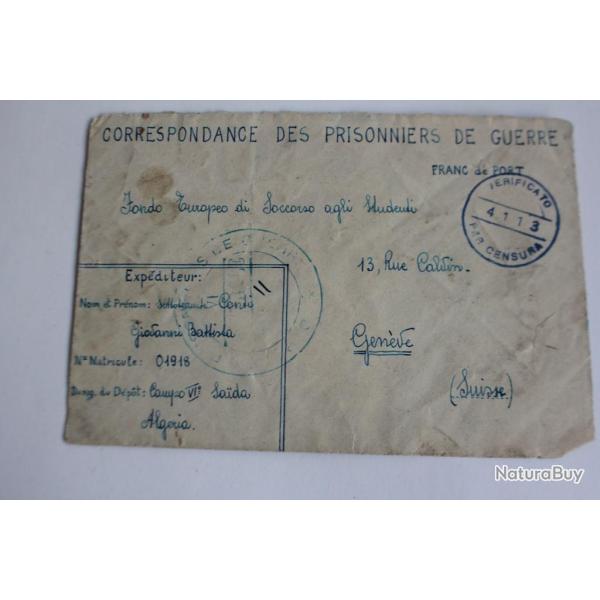 CORRESPONDANCE DES PRISONNIERS DE GUERRE
FRANC de PORT
VERIFICATO
4113
PAR CENSURA
Fondo Europeo di Soccorso agli Studenti
13, Rue Calvin.
Genève
(Suisse)
11
Expéditeur:
Nom et Prénom: Conti
Giovanni Battista
N° Matricule: 01918
Désig. du Dépôt: Campo VII° Saïda
Algeria.
NaturaBuy